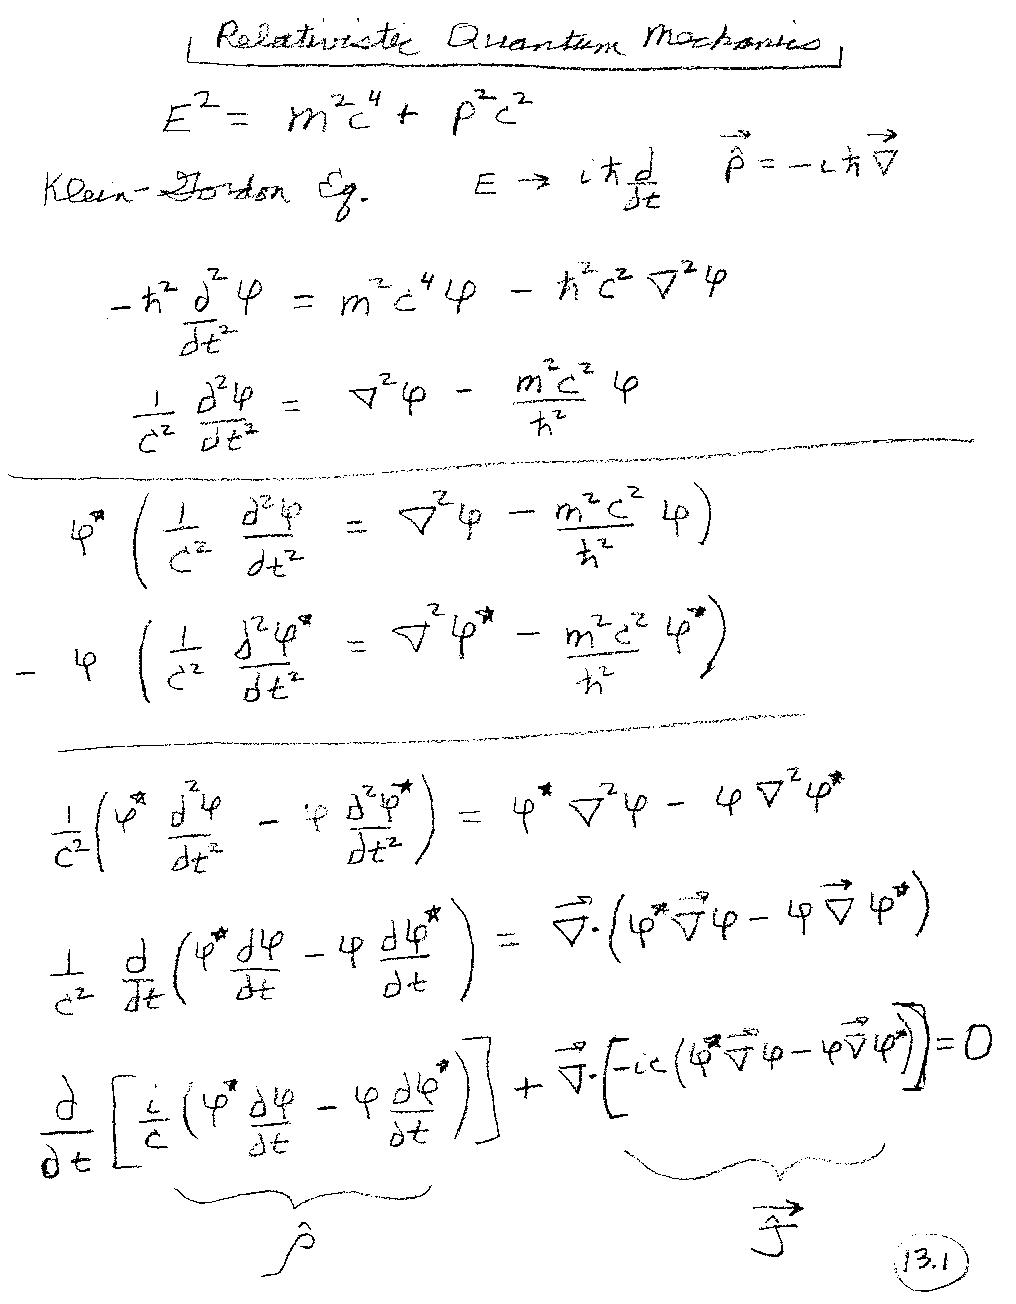 Relativistic Quantum Mechanics
E² = m²c⁴ + p²c²
Klein-Gordon Eq. E → iħ ∂/∂t p̂⃗ = -iħ∇⃗
-ħ² ∂²φ/∂t² = m²c⁴φ - ħ²c²∇²φ
1/c² ∂²φ/∂t² = ∇²φ - m²c²/ħ² φ
φ* ( 1/c² ∂²φ/∂t² = ∇²φ - m²c²/ħ² φ )
- φ ( 1/c² ∂²φ*/∂t² = ∇²φ* - m²c²/ħ² φ* )
1/c² ( φ* ∂²φ/∂t² - φ ∂²φ*/∂t² ) = φ*∇²φ - φ∇²φ*
1/c² ∂/∂t ( φ* ∂φ/∂t - φ ∂φ*/∂t ) = ∇⃗·( φ*∇⃗φ - φ∇⃗φ* )
∂/∂t [ i/c ( φ* ∂φ/∂t - φ ∂φ*/∂t ) ] + ∇⃗·[ -ic ( φ*∇⃗φ - φ∇⃗φ* ) ] = 0
ρ̂ Ĵ⃗
13.1